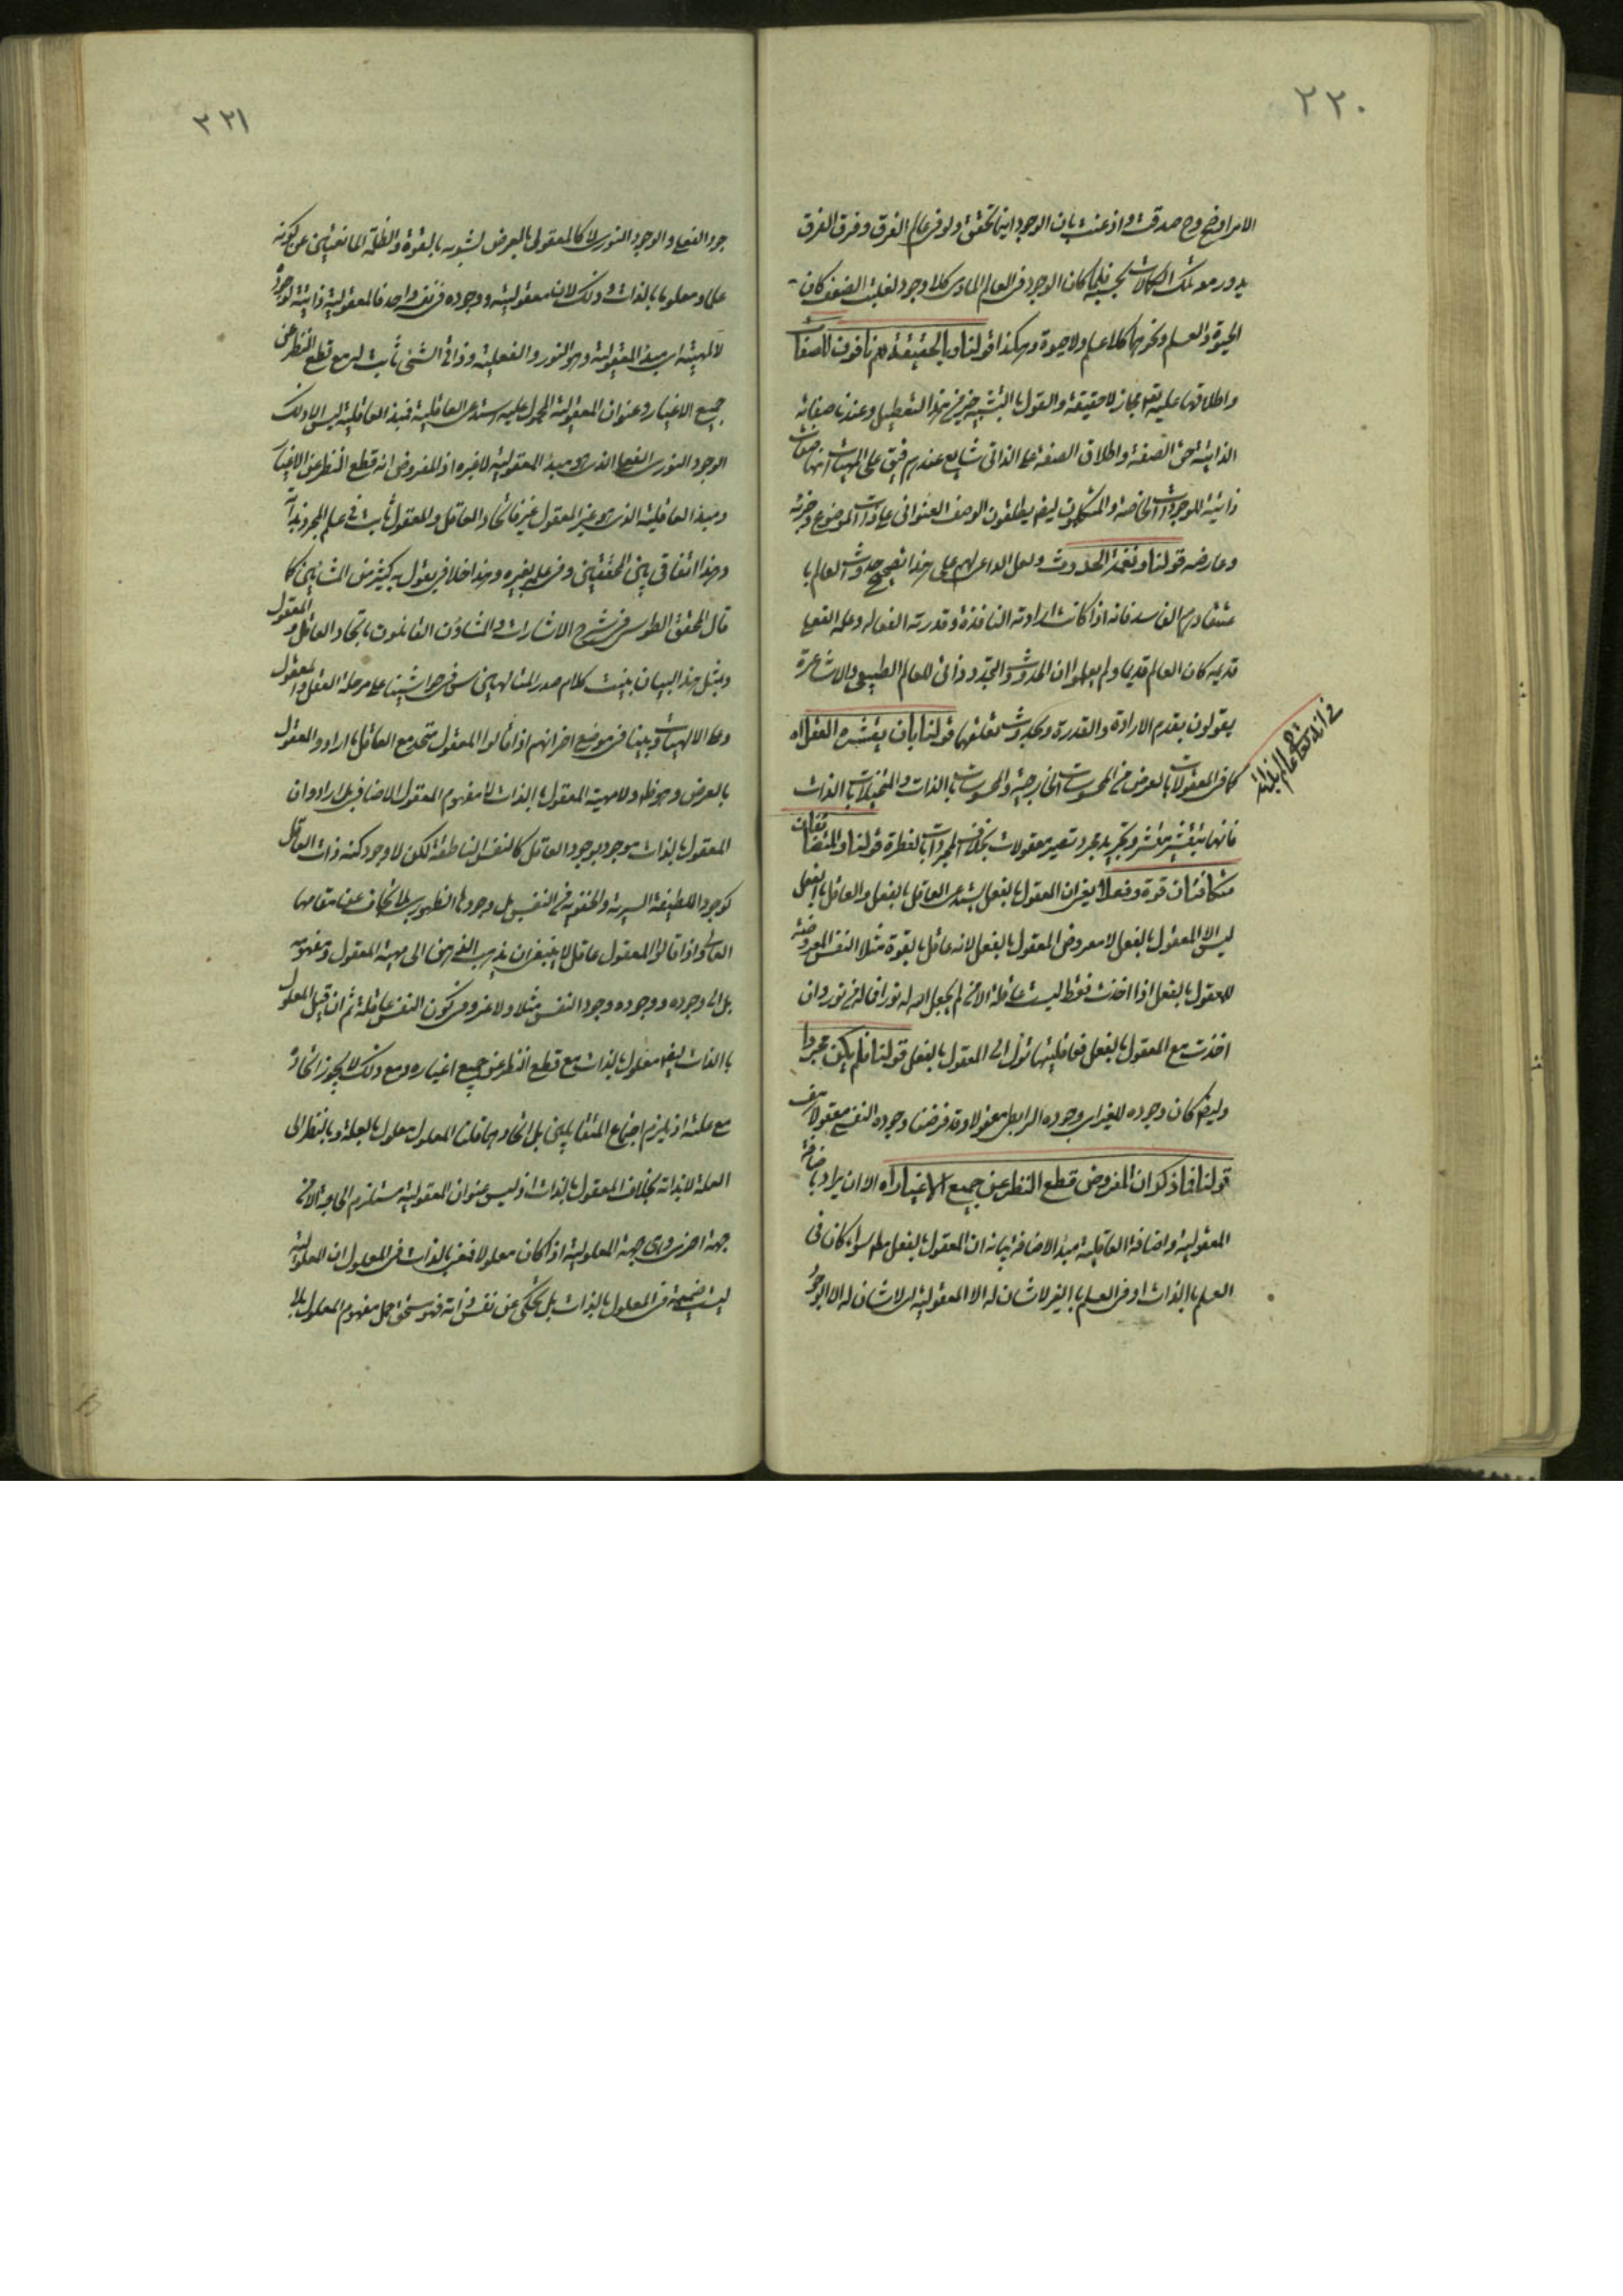 ٢٢٠
الامر اوضح وح صدقت واذعنت بان الوجود اينما تحقق ولو فى عالم الفرق وفرق الفرق
يدور معه تلك الكمالات بحسبه فلما كان الوجود فى العالم المادى كلا وجود لغلبة الضعف كان
الحيوة والعلم ونحوهما كلا علم ولا حيوة وهكذا قولنا وبالحقيقة هم نافون للصفات
واطلاقها عليه تعالى مجاز لا حقيقة والقول بالتشبيه خير من هذا التعطيل وعندنا صفاته
الذاتية حق الصفة واطلاق الصفة على الذاتى شايع عندهم فيق على المهيات انها صفات
ذاتية للوجودات الخاصة والمنطقيون ايضا يطلقون الوصف العنوانى على ذات الموضوع وجزئه
وعارضه قولنا ونغمة الحدوث ولعل الداعى لهم على هذا تصحيح حدوث العالم با
عتقادهم الفاسد فانه اذا كانت ارادته النافذة وقدرته الفعاله وعلمه الفعلى
قديمه كان العالم قديما ولم يعلموا ان الحدوث والتجدد ذاتى للعالم الطبيعى والاشاعرة
يقولون بقدم الارادة والقدرة وبحدوث تعلقها قولنا بان يقشره العقل اه
فى انه تعالى عالم بذاته
كما فى المعقولات بالعرض من المحسوسات الخارجية والمحسوسات بالذات والمتخيلات بالذات
فانها بتقشير مقشر وتجريد مجرد تصير معقولات بخلاف المجردات بالفطرة قولنا والمتضايفان
متكافئان قوة وفعلا يعنى ان المعقول بالفعل يستدعى العاقل بالفعل والعاقل بالفعل
ليس الا المعقول بالفعل لا معروض المعقول بالفعل لانه عاقل بالقوة مثلا النفس المعروضة
للمعقول بالفعل اذا اخذت فقط ليست عاقلة الا من لم يجعل الله له نورا فما له من نور وان
اخذت مع المعقول بالفعل فعاقليتها تؤل الى المعقول بالفعل قولنا فلم يكن مجردا
وايضا كان وجوده للغير اى وجوده الرابطى معقولا وقد فرضنا وجوده النفسى معقولا هف
قولنا فاذكر ان المفروض قطع النظر عن جميع الاغيار اه الا ان يراد باضافة
المعقولية واضافة العاقلية مبدا الاضافة بيانه ان المعقول بالفعل مطلقا سواء كان فى
العلم بالذات او فى العلم بالغير لا شان له الا المعقولية اى لا شان له الا الوجود
٢٢١
جود الفعلى والوجود النورى لا كالمعقول بالعرض لشوبه بالقوة والظلمة المانعتين عن كونه
علما ومعلوما بالذات وذلك لان معقوليته ووجوده فى نفسه واحد فالمعقولية ذاتية لوجوده
لا لمهيته اى مبدا المعقولية وهو النور والفعلية وذاتى الشئ ثابت له مع قطع النظر عن
جميع الاغيار وعنوان المعقولية المحمول عليه استدعى العاقلية فمبدا العاقلية ليس الا ذلك
الوجود النورى الفعلى الذى هو مبدا المعقولية لا غيره اذ المفروض انه قطع النظر عن الاغيار
ومبدا العاقلية الذى هو غير المعقول غير فاتحاد العاقل والمعقول ثابت فى علم المجرد بذاته
وهذا اتفاقى بين المحققين وفى علمه بغيره وهذا خلافى يقول به كثير من المشائين كما
قال المحقق الطوسى فى شرح الاشارات والمشاؤن القائلون باتحاد العاقل والمعقول
وبمثل هذا البيان بينت كلام صدر المتالهين س فى حواشينا على مرحلة العقل والمعقول
وعلى الالهيات وبينا فى موضع اخر انهم اذا قالوا المعقول متحد مع العاقل ما ارادوا المعقول
بالعرض وهو ظاهر ولا مهية المعقول بالذات لا مفهوم المعقول الاضافى بل ارادوا ان
المعقول بالذات موجود بوجود العاقل كالنفس الناطقة لكن لا وجود كنه ذات العاقل
كوجود اللطيفة السرية والخفويه من النفس بل وجودها الظهورى بلا تجاف عن مقامها
العالى واذا قالوا المعقول عاقل لا ينبغى ان يذهب الذهن الى مهية المعقول ومفهومه
بل الى وجوده ووجوده وجود النفس مثلا ولا غرو فى كون النفس عاقلة ثم ان قيل المعلول
بالذات ايضا معلول بالذات مع قطع النظر عن جميع اغياره ومع ذلك لا يجوز اتحاده
مع علته اذ يلزم اجتماع المتقابلين بل اتحادهما قلنا المعلول معلول بالعلة وبالنظر الى
العلة لا بذاته بخلاف المعقول بالذات اذ ليس عنوان المعقولية مستلزم الحاجة الا من
جهة اخرى وهى جهة المعلولية اذا كان معلولا فمعنى بالذات فى المعلول ان المعلولية
ليست ضميمة فى المعلول بالذات بل تحكى عن نفس ذاته فهو مستحق حمل مفهوم المعلول بلا